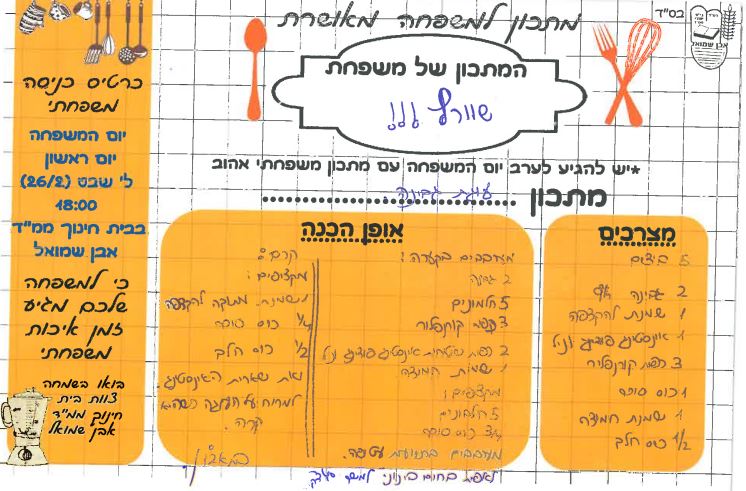 בס"ד
אבן שמואל
מתכון למשפחה מאושרת
המתכון של משפחת
שוורץ !!!
*יש להגיע לערב יום המשפחה עם מתכון משפחתי אהוב
מתכון עוגת גבינה
מצרכים
5 ביצים
2 גבינה
1 שמנת להקצפה
1 אינסטנט פודינג וניל
3 כפות קורנפלור
1 כוס סוכר
1 שמנת חמוצה
1/2 כוס חלב
אופן הכנה
מערבבים בקערה:
2 גבינה
5 חלמונים
3 כפות קורנפלור
2 כפות אינסטנט פודינג וניל
1 שמנת חמוצה
מקציפים:
5 חלבונים
3/4 כוס סוכר
מערבבים בתנועות עטיפה.
לאפות בחום בינוני למשך
קרם:
מקציפים:
שמנת מתוקה להקצפה
1/4 כוס סוכר
1/2 כוס חלב
ואת שארית האינסטנט.
למרוח על העוגה כשהיא
קרה.
בתאבון
כרטיס כניסה
משפחתי
יום המשפחה
יום ראשון
ל' שבט (26/2)
18:00
בבית חינוך ממ"ד
אבן שמואל
כי למשפחה
שלכם מגיע
זמן איכות
משפחתי
בואו בשמחה
צוות בית
חינוך ממ"ד
אבן שמואל